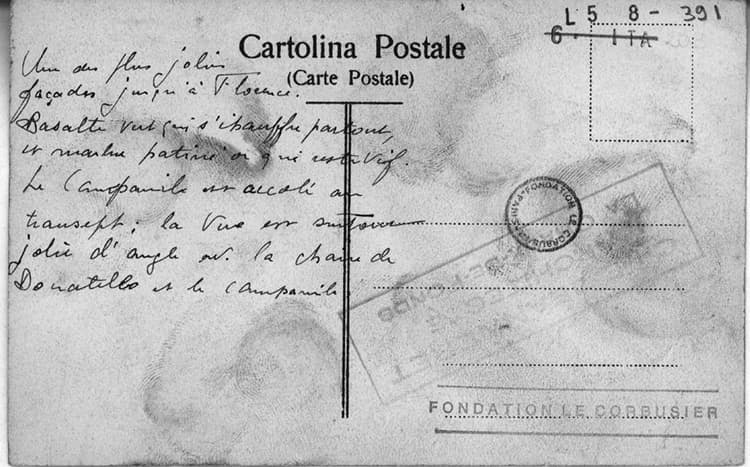 L 5 8 - 391
6 - ITA
Cartolina Postale
(Carte Postale)
Une des plus jolies
façades jusqu'à Florence.
Basalte vert qui s'échauffe partout,
et marbre patiné or qui reste vif.
Le Campanile est accolé au
transept ; la Vue est surtout
jolie d'angle av. la chaire de
Donatello et le Campanile
FONDATION LE CORBUSIER
PARIS
FONDATION LE CORBUSIER